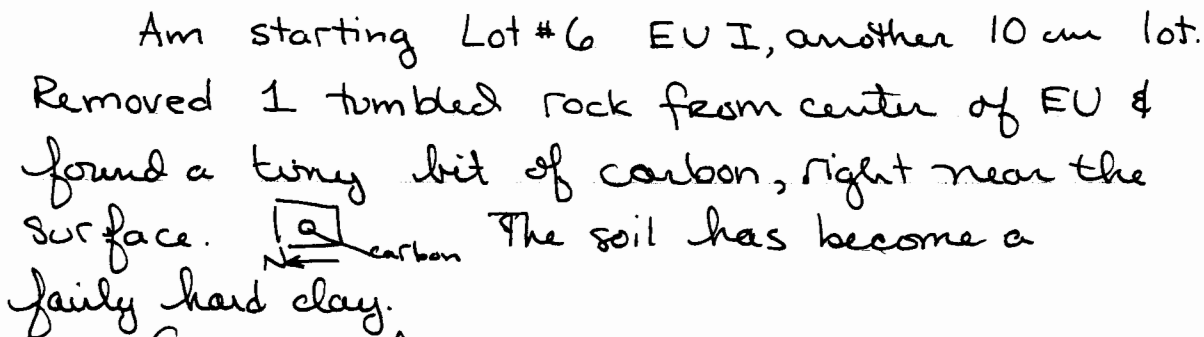 Am starting Lot #6 EU I, another 10 cm lot.
Removed 1 tumbled rock from center of EU &
found a tiny bit of carbon, right near the
surface. N carbon The soil has become a
fairly hard clay.